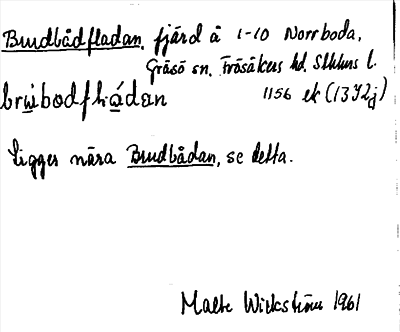 Brudbådfladan, fjärd å 1-10 Norrboda,
Gräsö sn, Frösåkers hd, Sthlms l.
1156 ek (13 I 2j)
Ligger nära Brudbådan, se detta.
Malte Wickström 1961